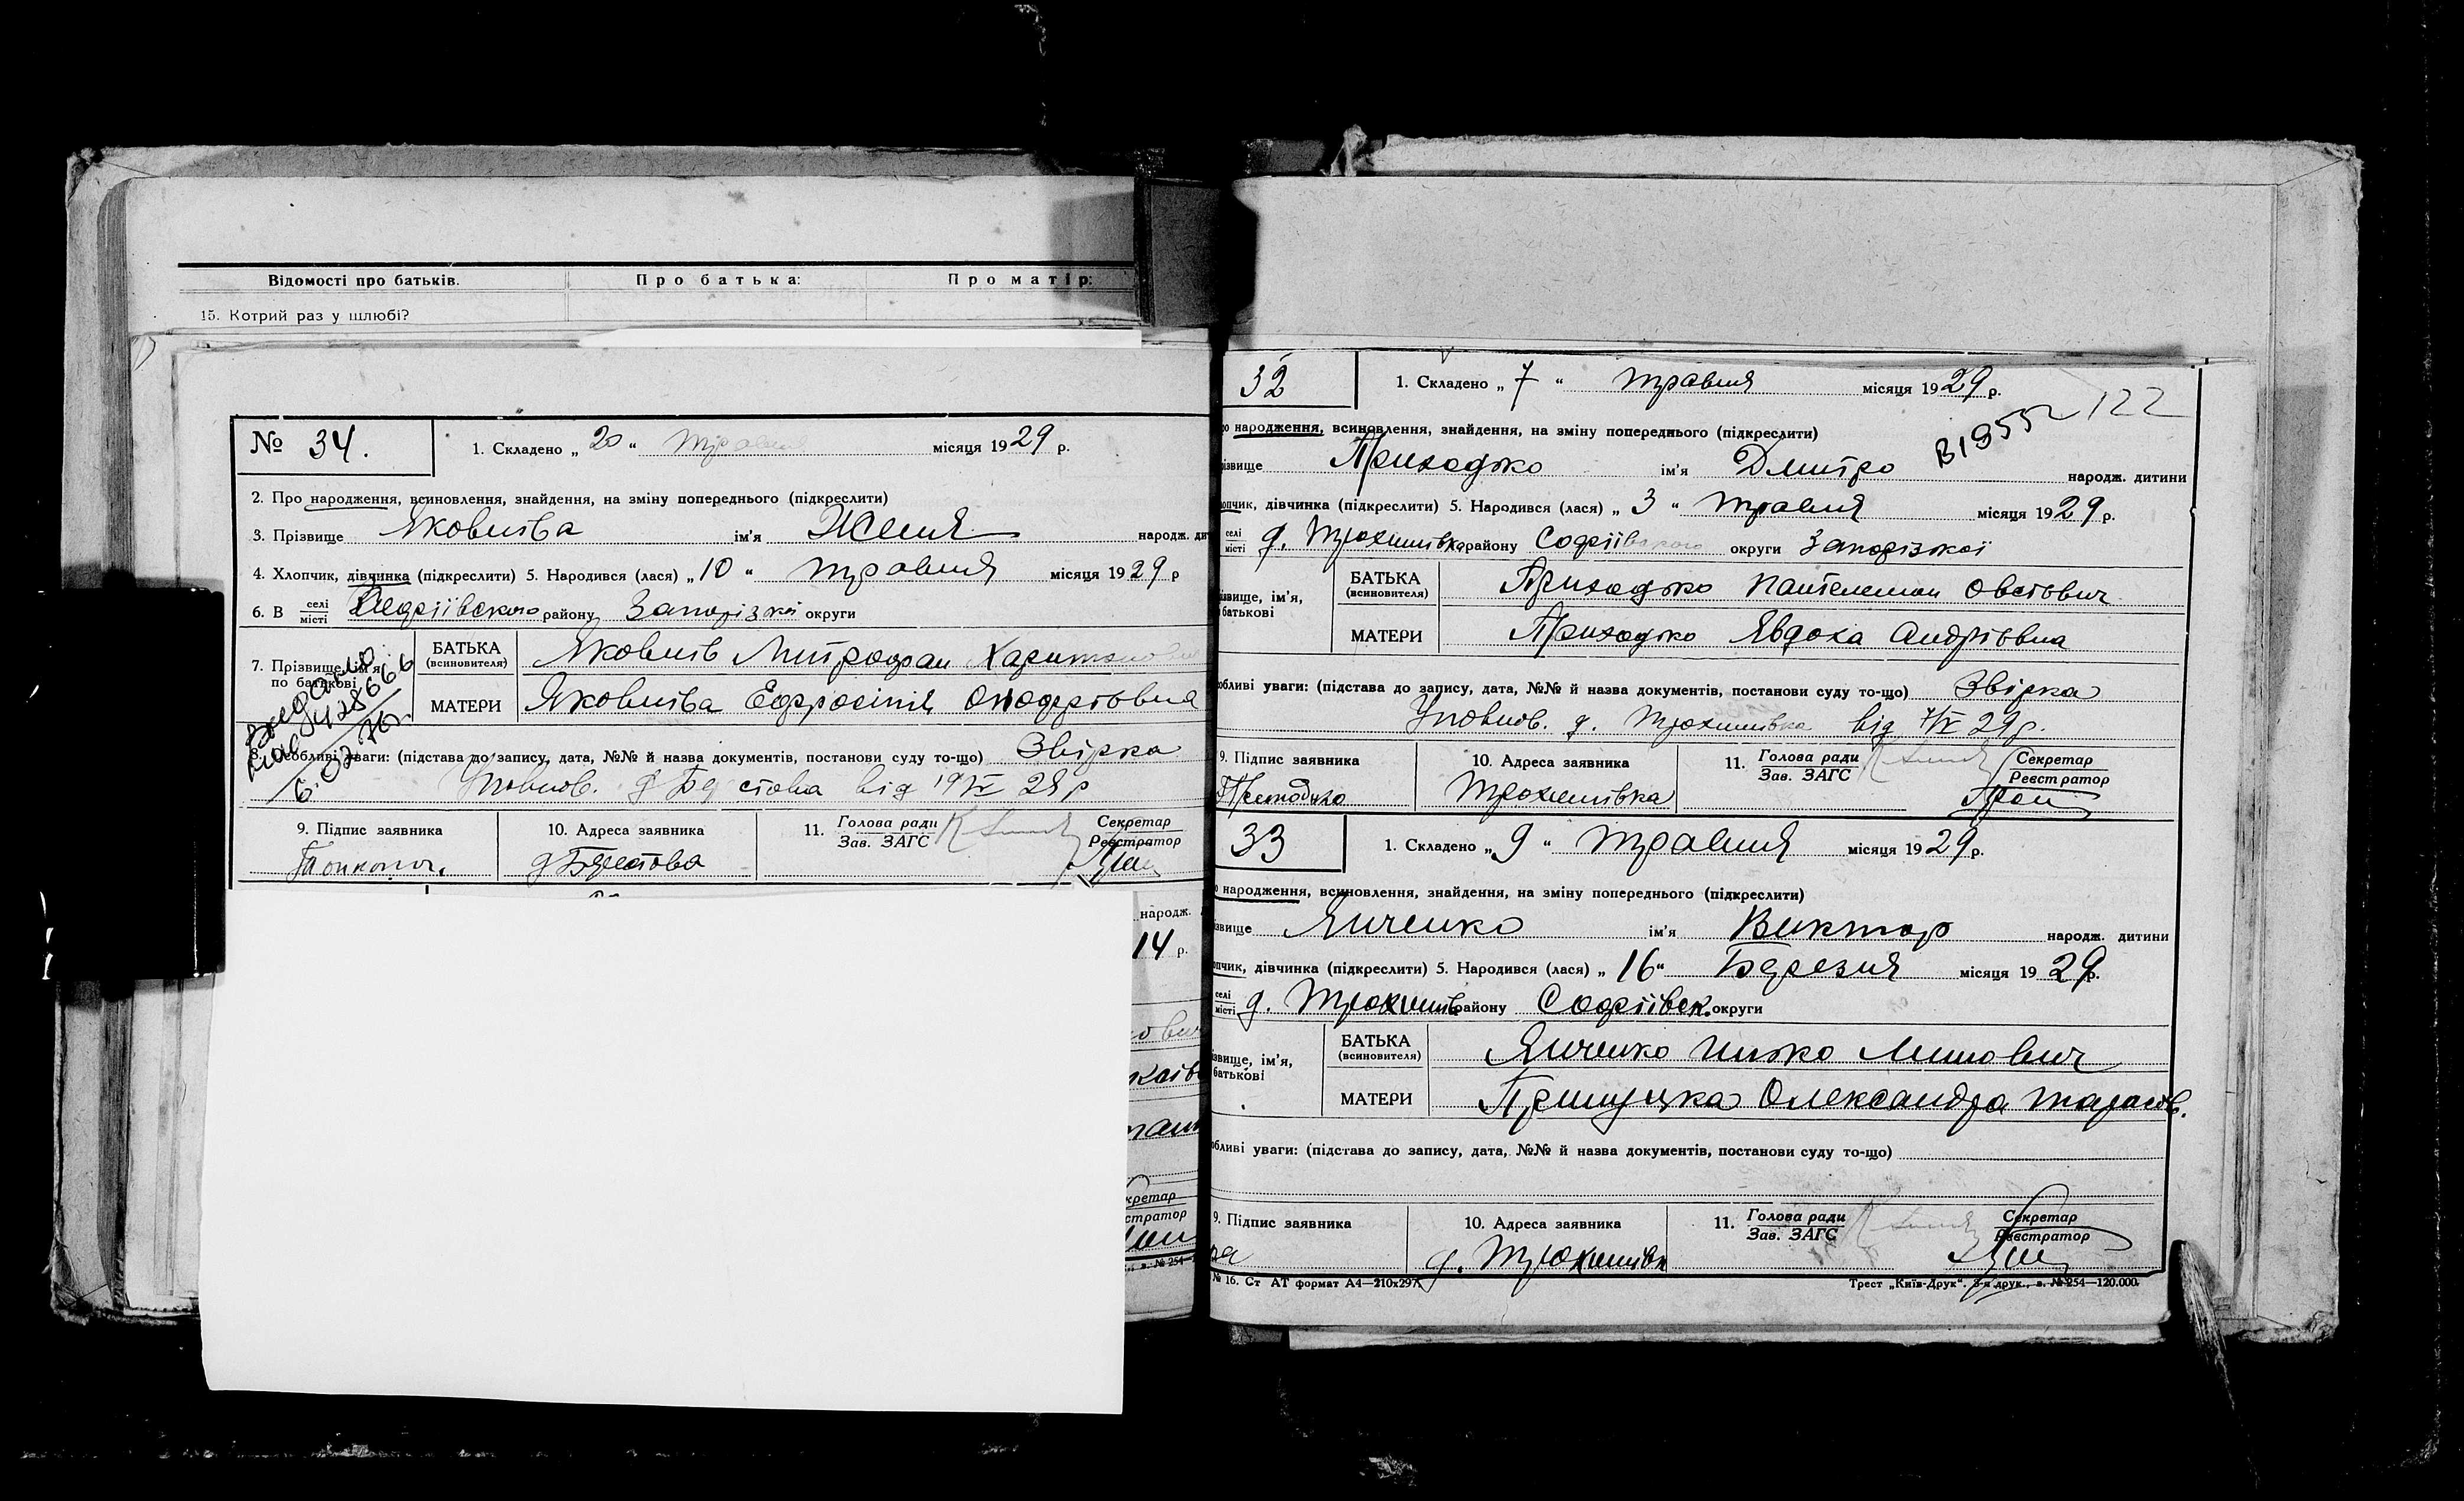 Відомості про батьків.
Про батька:
Про матір:
15. Котрий раз у шлюбі?
№ 34.
1. Складено „20“ травня місяця 1929 р.
2. Про народження, всиновлення, знайдення, на зміну попереднього (підкреслити)
3. Прізвище Яковліва ім'я Женя народж. ди
4. Хлопчик, дівчинка (підкреслити) 5. Народився (лася) „10“ травня місяця 1929 р
6. В селі місті Софіївского району Запорізкої округи
7. Прізвище, ім'я по батькові
БАТЬКА (всиновителя) Яковлів Митрофан
МАТЕРИ Яковліва Ефросінія
428666
особливі уваги: (підстава до запису, дата, №№ й назва документів, постанови суду то-що) Звірка
Уповнов. від 19/IV 29 р
9. Підпис заявника
10. Адреса заявника
11. Голова ради Зав. ЗАГС
Секретар Реєстратор
народж.
14 р.
кретар
стратор
32
1. Складено „7“ травня місяця 1929 р.
122
о народження, всиновлення, знайдення, на зміну попереднього (підкреслити)
В19552
ізвище Приходько ім'я Дмитро народж. дитини
опчик, дівчинка (підкреслити) 5. Народився (лася) „3“ травня місяця 1929 р.
селі місті д. Трохимівка району Софіївского округи Запорізкої
ізвище, ім'я, батькові
БАТЬКА (всиновителя) Приходько Пантелемон Овстович
МАТЕРИ Приходько Явдоха Андріівна
обливі уваги: (підстава до запису, дата, №№ й назва документів, постанови суду то-що) Звірка
Уповнов. д. Трохимівка від 7/V 29 р.
9. Підпис заявника
10. Адреса заявника
11. Голова ради Зав. ЗАГС
Секретар Реєстратор
Приходько
Трохимівка
33
1. Складено „9“ травня місяця 1929 р.
о народження, всиновлення, знайдення, на зміну попереднього (підкреслити)
ізвище Янченко ім'я Виктор народж. дитини
опчик, дівчинка (підкреслити) 5. Народився (лася) „16“ Березня місяця 1929 р.
селі місті д. Трохимів району Софіівск. округи
ізвище, ім'я, батькові
БАТЬКА (всиновителя) Янченко
МАТЕРИ Олександра Тарасів.
обливі уваги: (підстава до запису, дата, №№ й назва документів, постанови суду то-що)
9. Підпис заявника
10. Адреса заявника
11. Голова ради Зав. ЗАГС
Секретар Реєстратор
д. Трохимівк
№ 16. Ст АТ формат А4—210x297.
Трест „Київ-Друк“. 3-я друк., з. № 254—120.000.